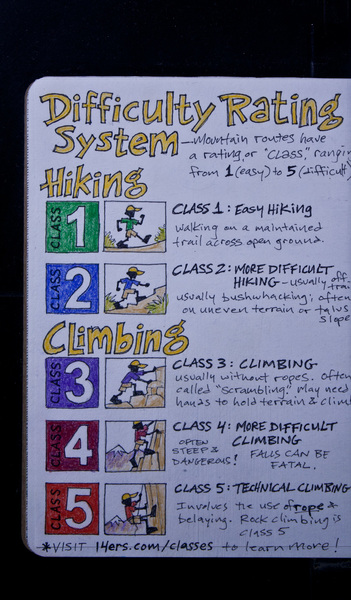 Difficulty Rating
System - Mountain routes have
a rating, or "class," rangin
from 1 (easy) to 5 (difficult)
Hiking
CLASS 1
CLASS 1: Easy Hiking
walking on a maintained
trail across open ground.
CLASS 2
CLASS 2: MORE DIFFICULT
HIKING - usually off-
trail
usually bushwhacking; often
on uneven terrain or talus
slope
Climbing
CLASS 3
CLASS 3: CLIMBING
usually without ropes. Often
called "Scrambling." May need
hands to hold terrain & climb
CLASS 4
CLASS 4: MORE DIFFICULT
CLIMBING
OFTEN
STEEP &
DANGEROUS!
FALLS CAN BE
FATAL.
CLASS 5
CLASS 5: TECHNICAL CLIMBING
Involves the use of rope &
belaying. Rock climbing is
class 5
*VISIT 14ers.com/classes to learn more!